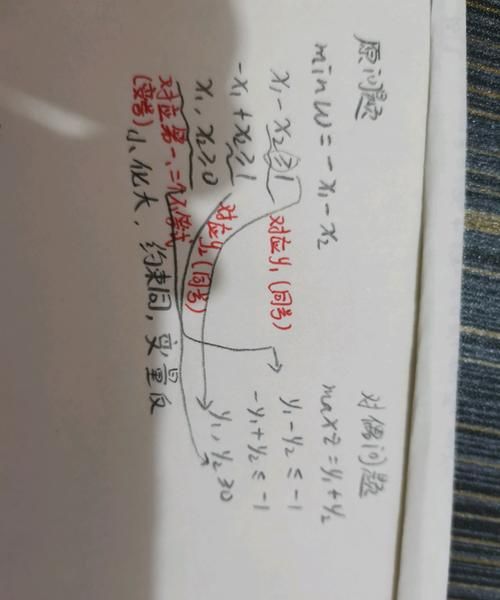 原问题
min W = -x₁ - x₂
x₁ - x₂ ≥ 1
-x₁ + x₂ ≥ 1
x₁, x₂ ≥ 0
对应y₁ (同号)
对应y₂ (同号)
对应第一、二个不等式
(变号)
小化大, 约束同, 变量反
对偶问题
max z = y₁ + y₂
y₁ - y₂ ≤ -1
-y₁ + y₂ ≤ -1
y₁, y₂ ≥ 0